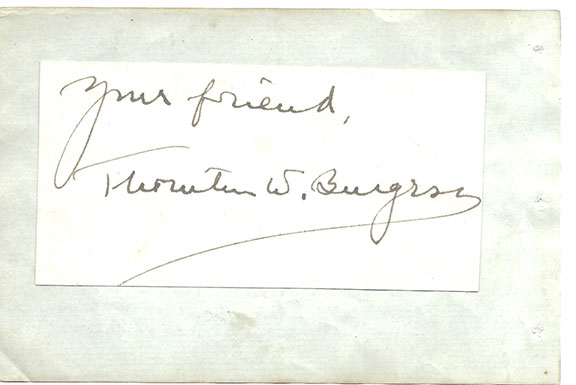 Your friend,
Thornton W. Burgess